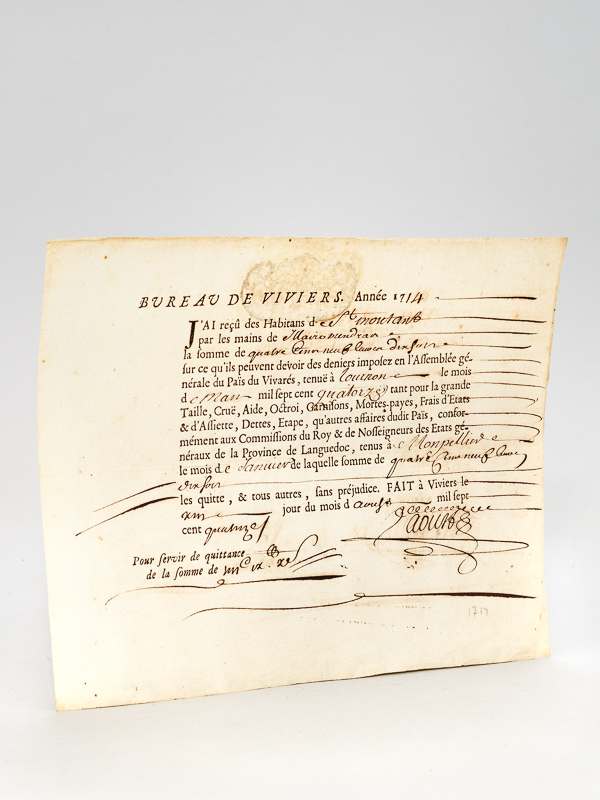 BUREAU DE VIVIERS. Année 1714
J'AI reçû des Habitans de St. montant
par les mains de
la somme de quatre cens neuf livres dix sols
sur ce qu'ils peuvent devoir des deniers imposez en l'Assemblée gé-
nérale du Païs du Vivarés, tenuë à tournon le mois
de Mars mil sept cent quatorze tant pour la grande
Taille, Cruë, Aide, Octroi, Garnisons, Mortes-payes, Frais d'Etats
& d'Assiette, Dettes, Etape, qu'autres affaires dudit Païs, confor-
mément aux Commissions du Roy & de Nosseigneurs des Etats gé-
néraux de la Province de Languedoc, tenus à Montpellier
le mois de Janvier de laquelle somme de quatre cens neuf livres
dix sols
les quitte, & tous autres, sans préjudice. FAIT à Viviers le
jour du mois d'aoust mil sept
cent quatorze
Pour servir de quittance
de la somme de
1714